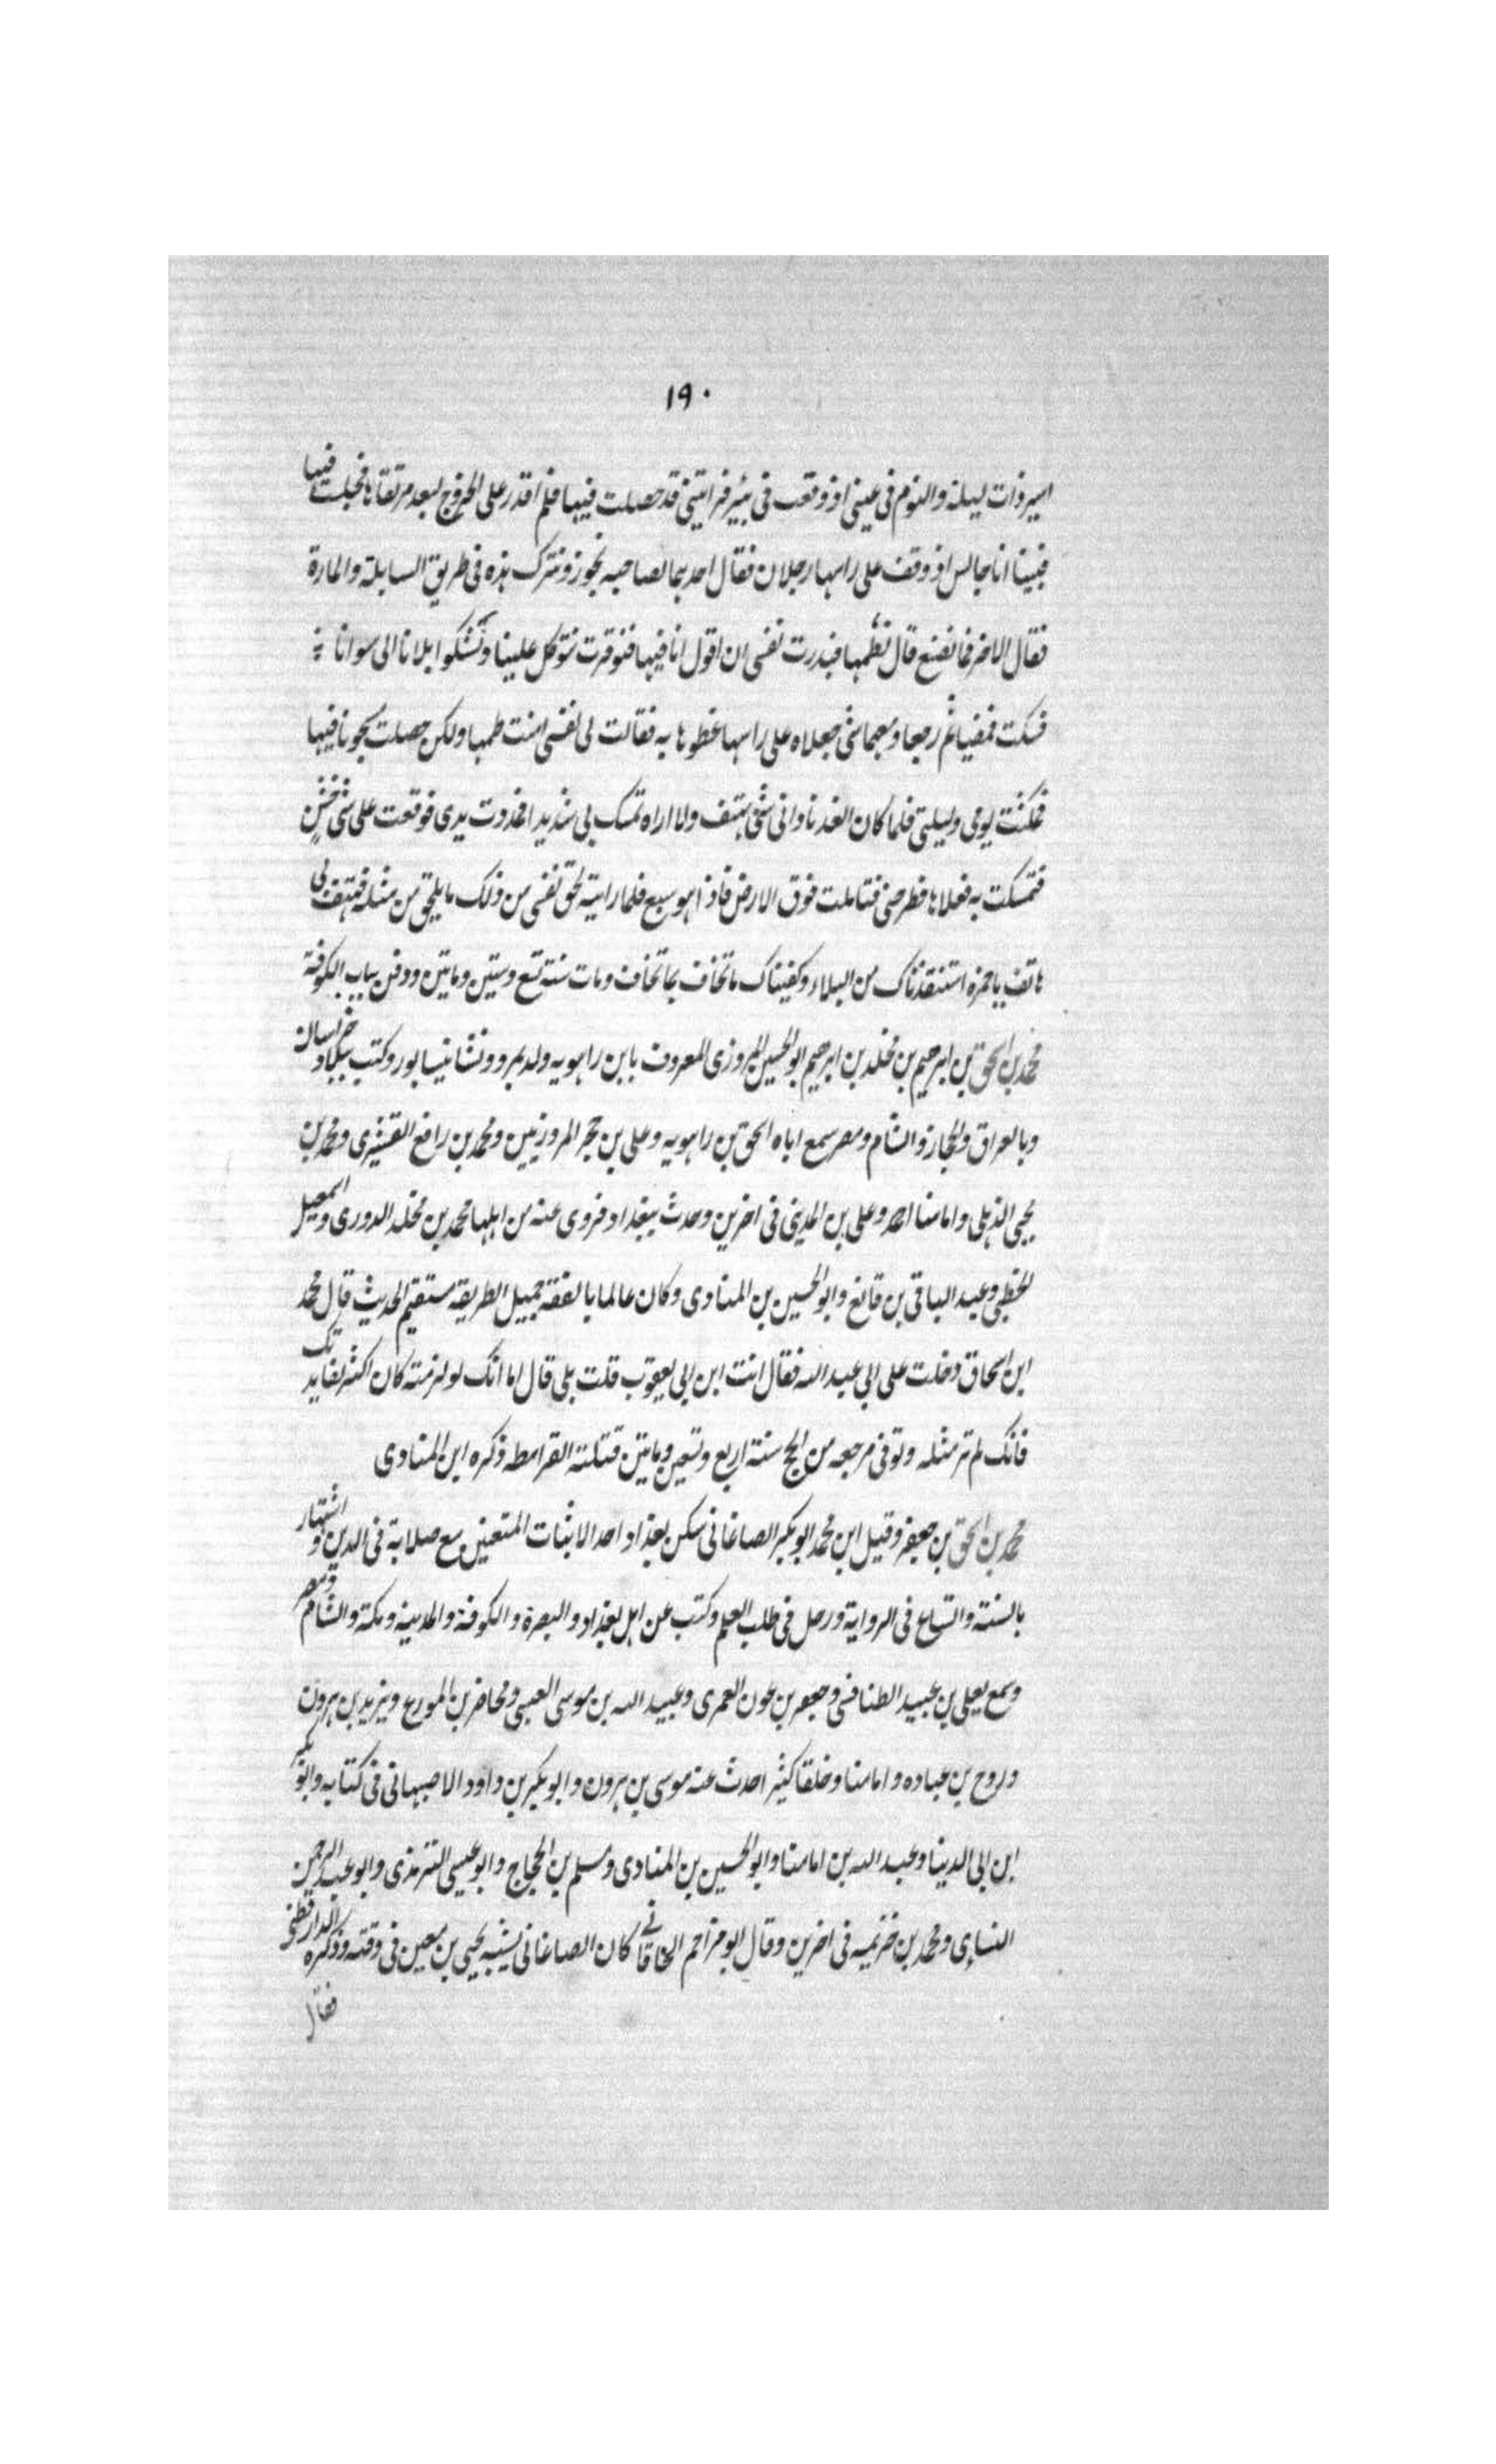 ١٩٠
اسير ذات ليلة والنوم في عيني اذ وقعت في بئر فرايتني قد حصلت فيها فلم اقدر على الخروج لبعد مرتقاها فجلست فيها
فبينا انا جالس اذ وقف على راسها رجلان فقال احدهما لصاحبه نجوز ونترك هذه في طريق السابلة والمارة
فقال الاخر فما نصنع قال نطمها فبدرت نفسي ان اقول انا فيها فنوقرت تتوكل علينا وتشكو بلانا الى سوانا
فسكت فمضيا ثم رجعا ومعهما شي جعلاه على راسها غطوها به فقالت لي نفسي امنت طمها ولكن حصلت مسجونا فيها
فمكثت يومي وليلتي فلما كان الغد ناداني شي يهتف ولا اراه تمسك بي شديدا فمددت يدي فوقعت على شي خشن
فتمسكت به فعلاها فطرحني فتاملت فوق الارض فاذا هو سبع فلما رايته لحق نفسي من ذلك ما يلحق من مثله فهتف بي
هاتف يا حمزه استنقذناك من البلاء وكفيناك ما تخاف بما تخاف ومات سنة تسع وستين ومايتين ودفن بباب الكوفة
محمد بن اسحق بن ابرهيم بن مخلد بن ابرهيم ابو الحسين المروزي المعروف بابن راهويه ولد بمرو ونشا بنيسابور وكتب ببلاد خراسان
وبالعراق والحجاز والشام ومصر سمع اباه اسحق بن راهويه وعلي بن حجر المروزيين ومحمد بن رافع القشيري ومحمد بن
يحيى الذهلي وامامنا احمد وعلي بن المديني في اخرين وحدث ببغداد فروى عنه من اهلها محمد بن مخلد الدوري واسمعيل
الخطبي وعبد الباقي بن قانع وابو الحسين بن المنادى وكان عالما بالفقه جميل الطريقه مستقيم الحديث قال محمد
ابن اسحاق دخلت على ابي عبد الله فقال انت ابن ابي يعقوب قلت بلى قال اما انك لو لزمته كان اكثر لفايدتك
فانك لم تر مثله وتوفى مرجعه من الحج سنة اربع وتسعين ومايتين قتلته القرامطه ذكره ابن المنادى
محمد بن اسحق بن جعفر وقيل ابن محمد ابو بكر الصاغاني سكن بغداد احد الاثبات المتقنين مع صلابة في الدين واشتهار
بالسنة واتساع في الرواية ورحل في طلب العلم وكتب عن اهل بغداد والبصرة والكوفة والمدينة ومكة والشام ومصر
وسمع يعلى بن عبيد الطنافسي وجعفر بن عون العمرى وعبيد الله بن موسى العبسي ومحاضر بن المورع ويزيد بن هرون
وروح بن عباده وامامنا وخلقا كثيرا حدث عنه موسى بن هرون وابو بكر بن داود الاصبهاني في كتابه وابو بكر
ابن ابي الدينا وعبد الله بن امامنا وابو الحسين بن المنادى ومسلم بن الحجاج وابو عيسى الترمذى وابو عبد الرحمن
النساءى ومحمد بن خزيمه في اخرين وقال ابو مزاحم الخاقاني كان الصاغاني يشبه يحيى بن معين في وقته وذكره الدارقطني
فقال